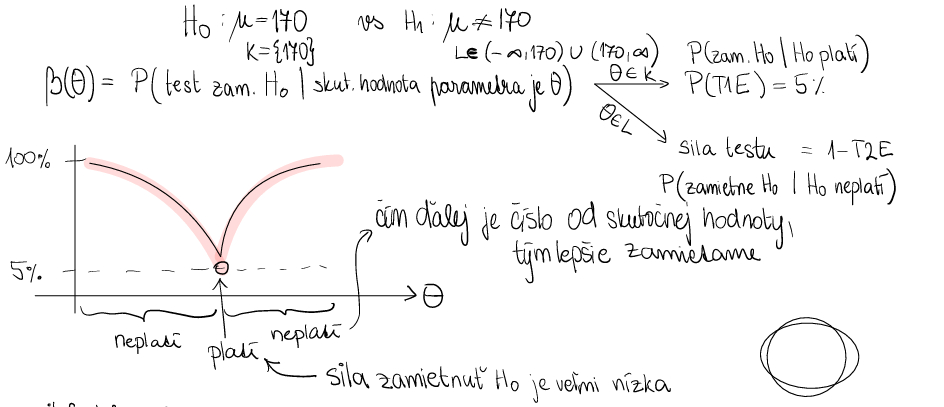 H₀ : μ = 170 vs H₁ : μ ≠ 170
K = {170} L ∈ (-∞, 170) ∪ (170, ∞) P(zam. H₀ | H₀ platí)
β(θ) = P(test zam. H₀ | skut. hodnota parametra je θ) θ∈K P(T1E) = 5%
θ∈L
100% sila testu = 1-T2E
P(zamietne H₀ | H₀ neplatí)
čím ďalej je číslo od skutočnej hodnoty,
tým lepšie zamietame
5%
θ
neplatí platí neplatí
sila zamietnuť H₀ je veľmi nízka